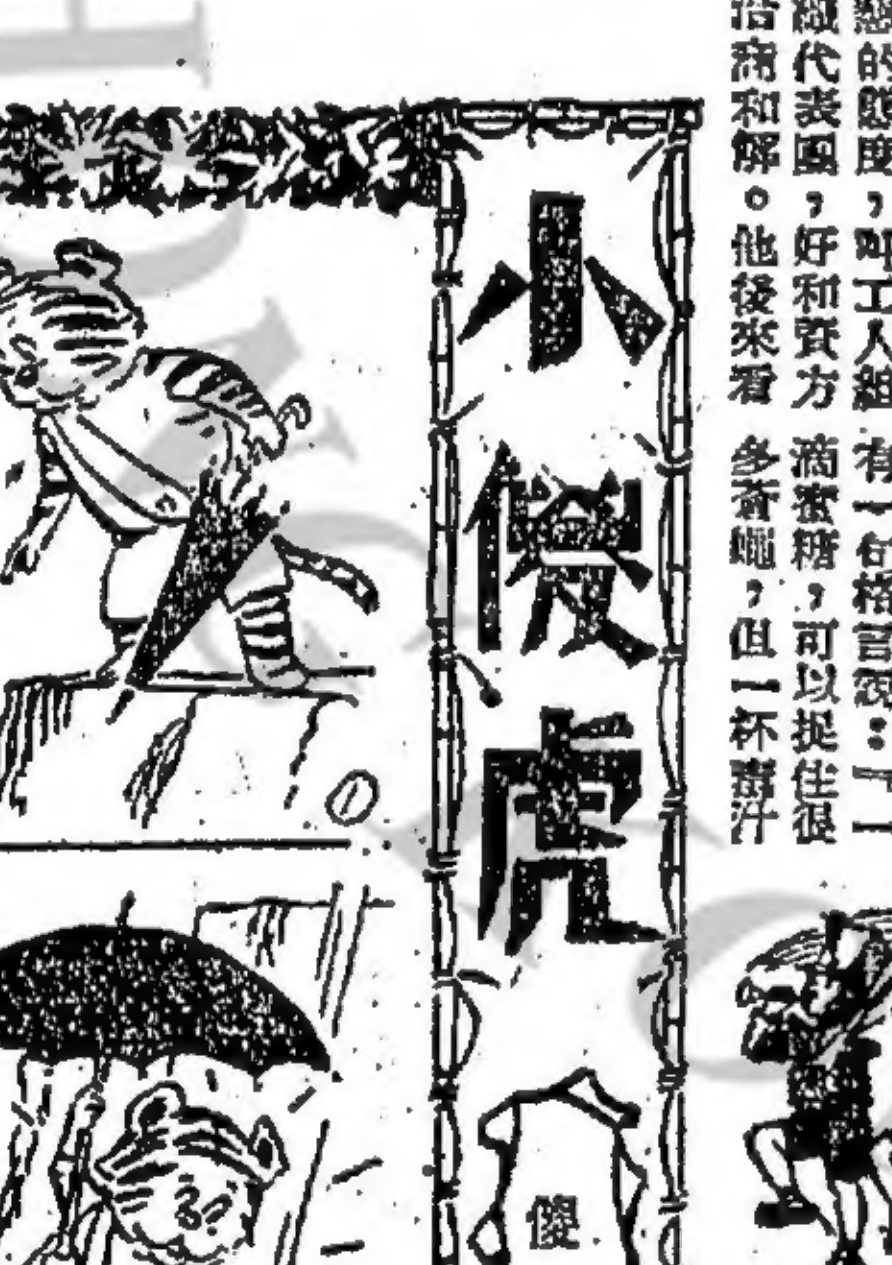 懇的態度，叫工人組
織代表團，好和資方
洽商和解。他後來看
有一句格言說：「一
滴蜜糖，可以捉住很
多蒼蠅，但一杯毒汁
小傻虎
傻
①